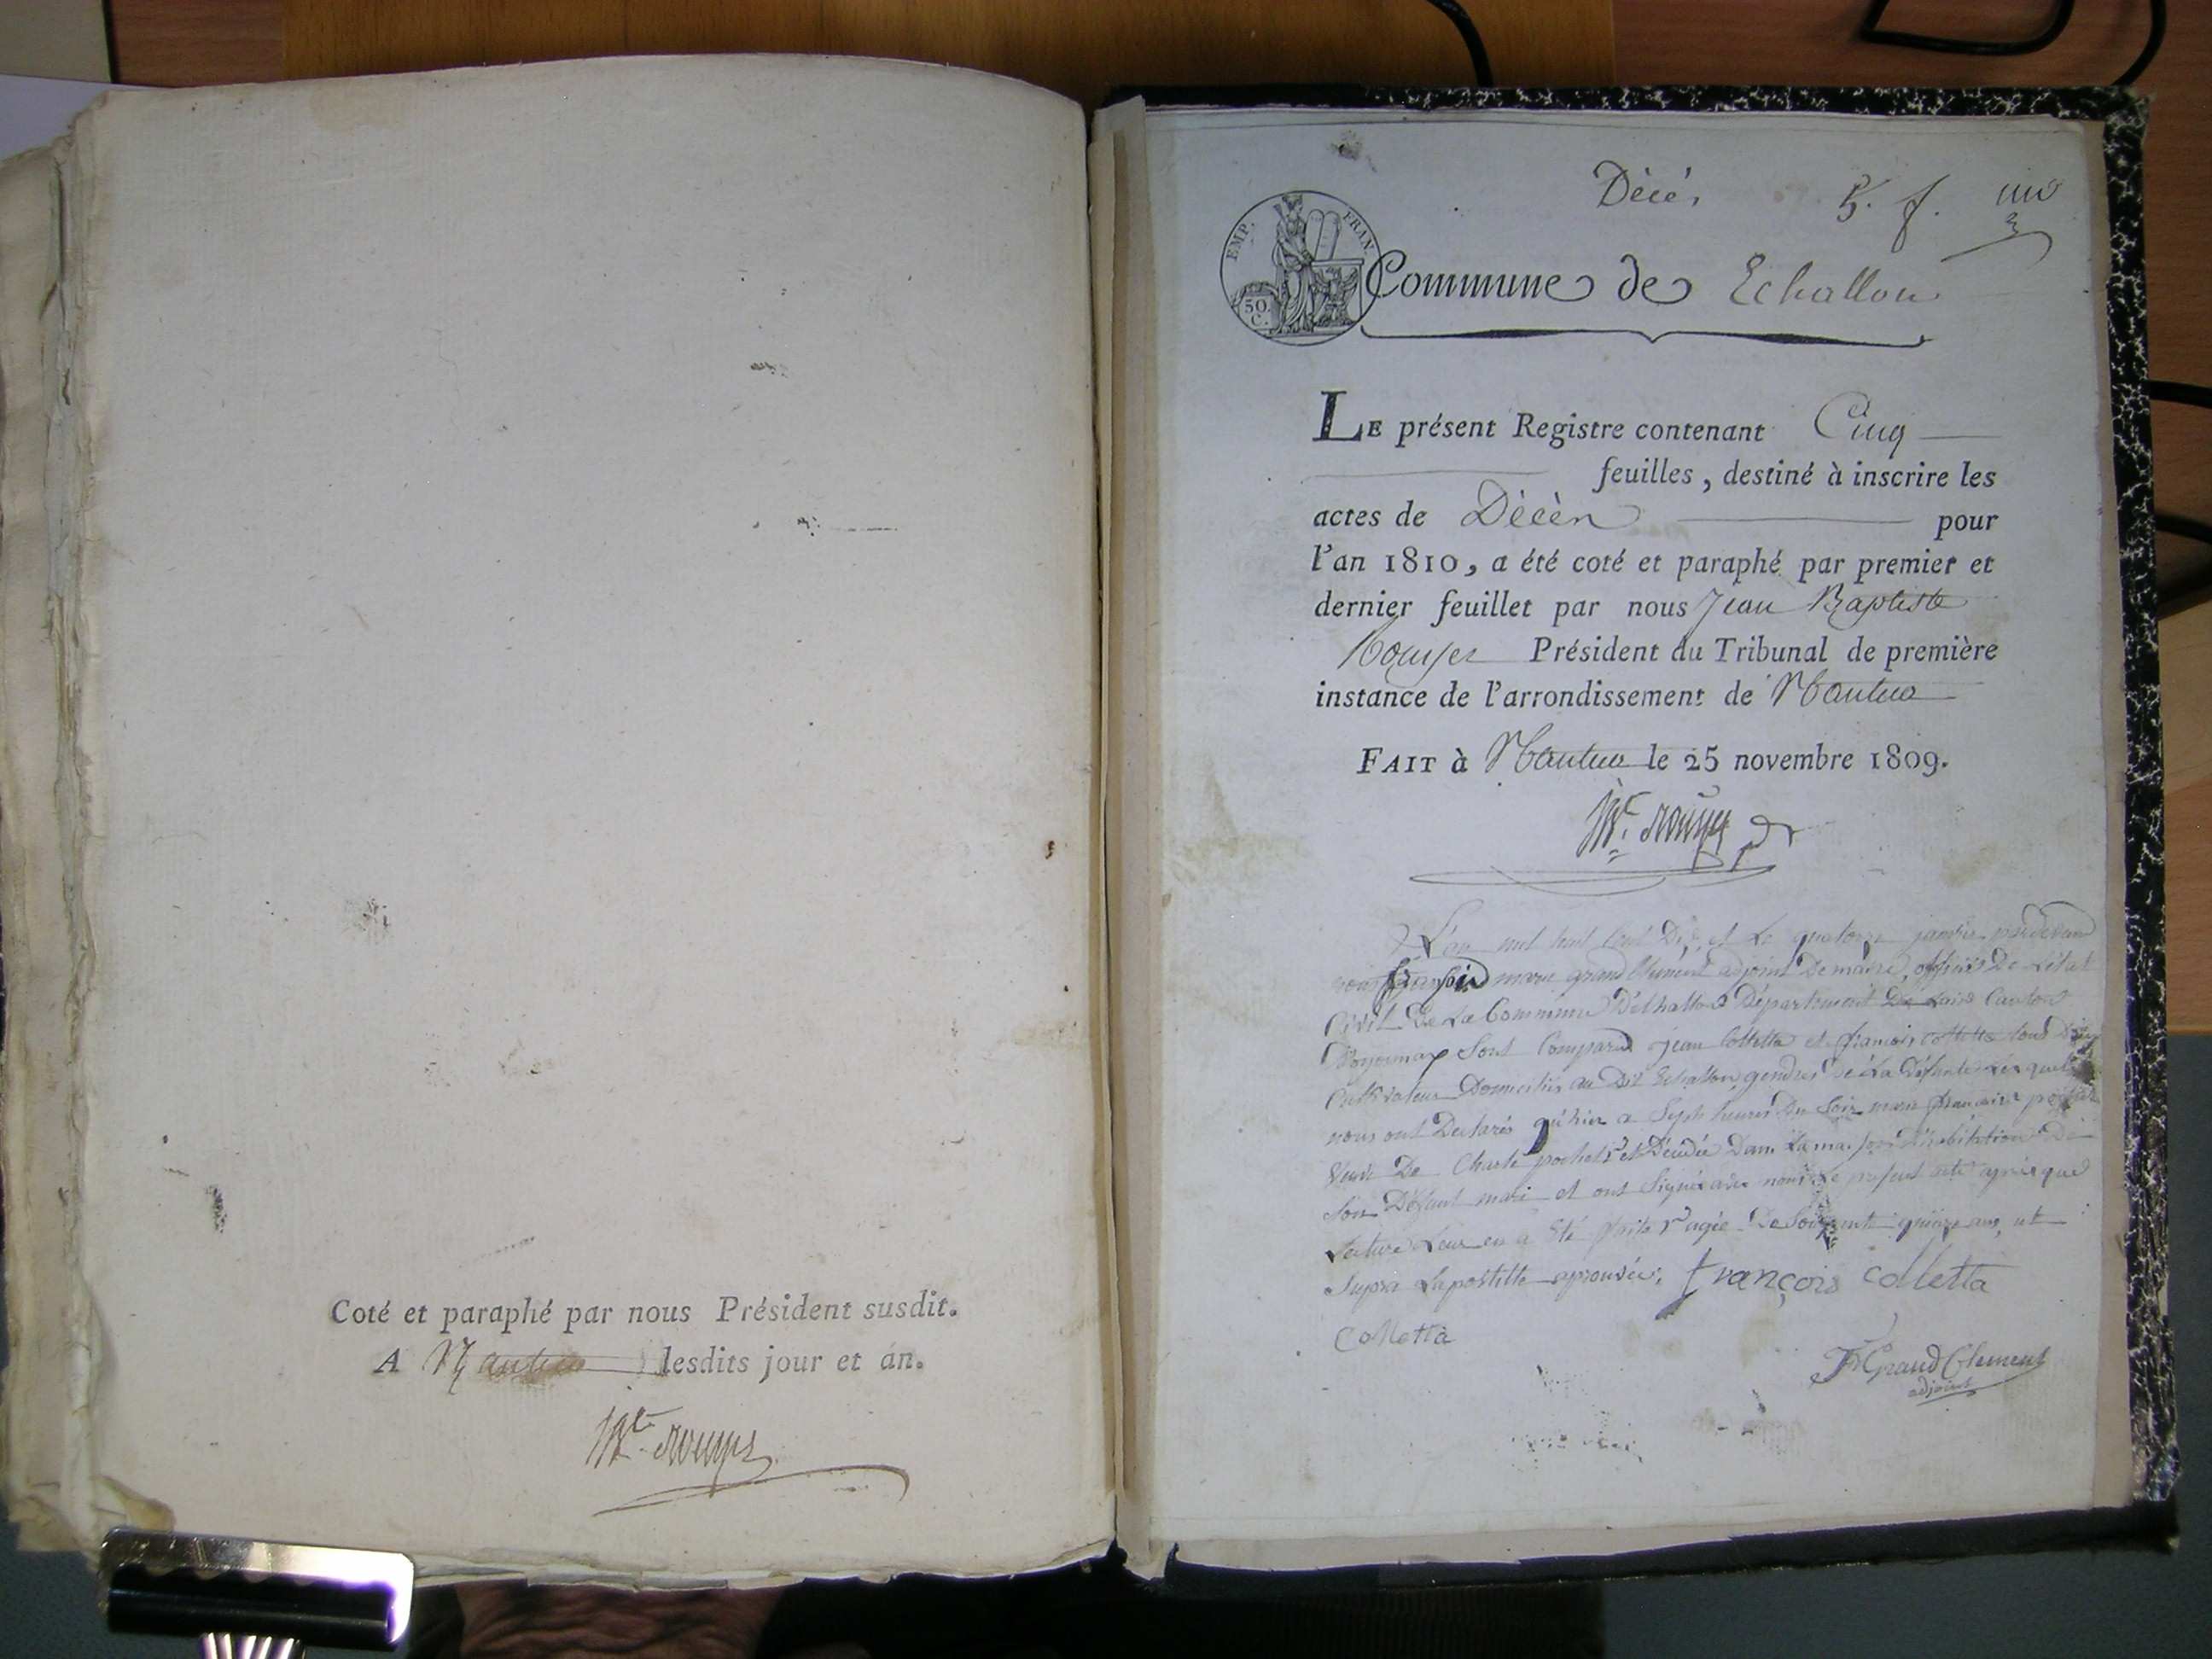 Coté et paraphé par nous Président susdit.
A Nantua lesdits jour et an.
Décés 5. f.
EMP. FRAN.
50. C.
Commune de Echallon
LE présent Registre contenant Cinq
feuilles, destiné à inscrire les
actes de Décès pour
l'an 1810, a été coté et paraphé par premier et
dernier feuillet par nous Jean Baptiste
Rouyer Président du Tribunal de première
instance de l'arrondissement de Nantua
FAIT à Nantua le 25 novembre 1809.
L'an mil huit Cent Dix et Le quatorze janvier pardevant
nous françois marie grand Clément adjoint De maire, officier De L'état
Civil De La Commune D'Echallon Département De Laind Canton
D'oyonnax Sont Comparus jean Colletta et francois colletta tous Deux
Cultivateur Domicilies au Dit Echallon, gendres De La Défunte Lesquels
nous ont Declarés qu'hier a Sept heures Du Soir marie francoise
Veuve De Charle pochet est Décédée Dans La maison D'habitation De
Son Défunt mari et ont Signés avec nous Le present acte après que
Lecture Leur en a Eté faite agée De Soixante quinze ans, ut
Supra Lapostille aprouvée. françois colletta
Colletta
GrandClement
adjoint